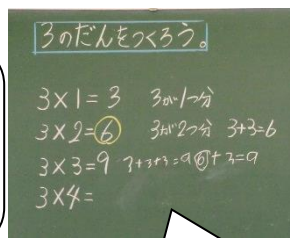 3のだんをつくろう。
3×1=3 3が1つ分
3×2=6 3が2つ分 3+3=6
3×3=9 3+3+3=9 6+3=9
3×4=